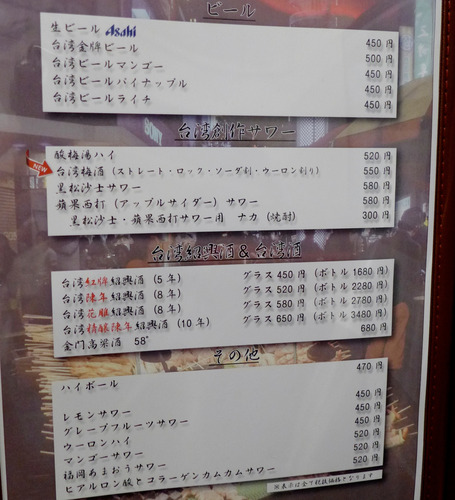 ビール
生ビール Asahi 450 円
台湾金牌ビール 500 円
台湾ビールマンゴー 450 円
台湾ビールパイナップル 450 円
台湾ビールライチ 450 円
台湾創作サワー
酸梅湯ハイ 520 円
NEW 台湾梅酒（ストレート・ロック・ソーダ割・ウーロン割り） 550 円
黒松沙士サワー 580 円
蘋果西打（アップルサイダー）サワー 580 円
黒松沙士・蘋果西打サワー用 ナカ（焼酎） 300 円
台湾紹興酒＆台湾酒
台湾紅牌紹興酒（5 年） グラス 450 円（ボトル 1680 円）
台湾陳年紹興酒（8 年） グラス 520 円（ボトル 2280 円）
台湾花雕紹興酒（8 年） グラス 580 円（ボトル 2780 円）
台湾精醸陳年紹興酒（10 年） グラス 650 円（ボトル 3480 円）
金門高粱酒 58° 680 円
その他
ハイボール 470 円
レモンサワー 450 円
グレープフルーツサワー 450 円
ウーロンハイ 450 円
マンゴーサワー 520 円
福岡あまおうサワー 520 円
ヒアルロン酸とコラーゲンカムカムサワー 520 円
※表示は全て税抜価格となります